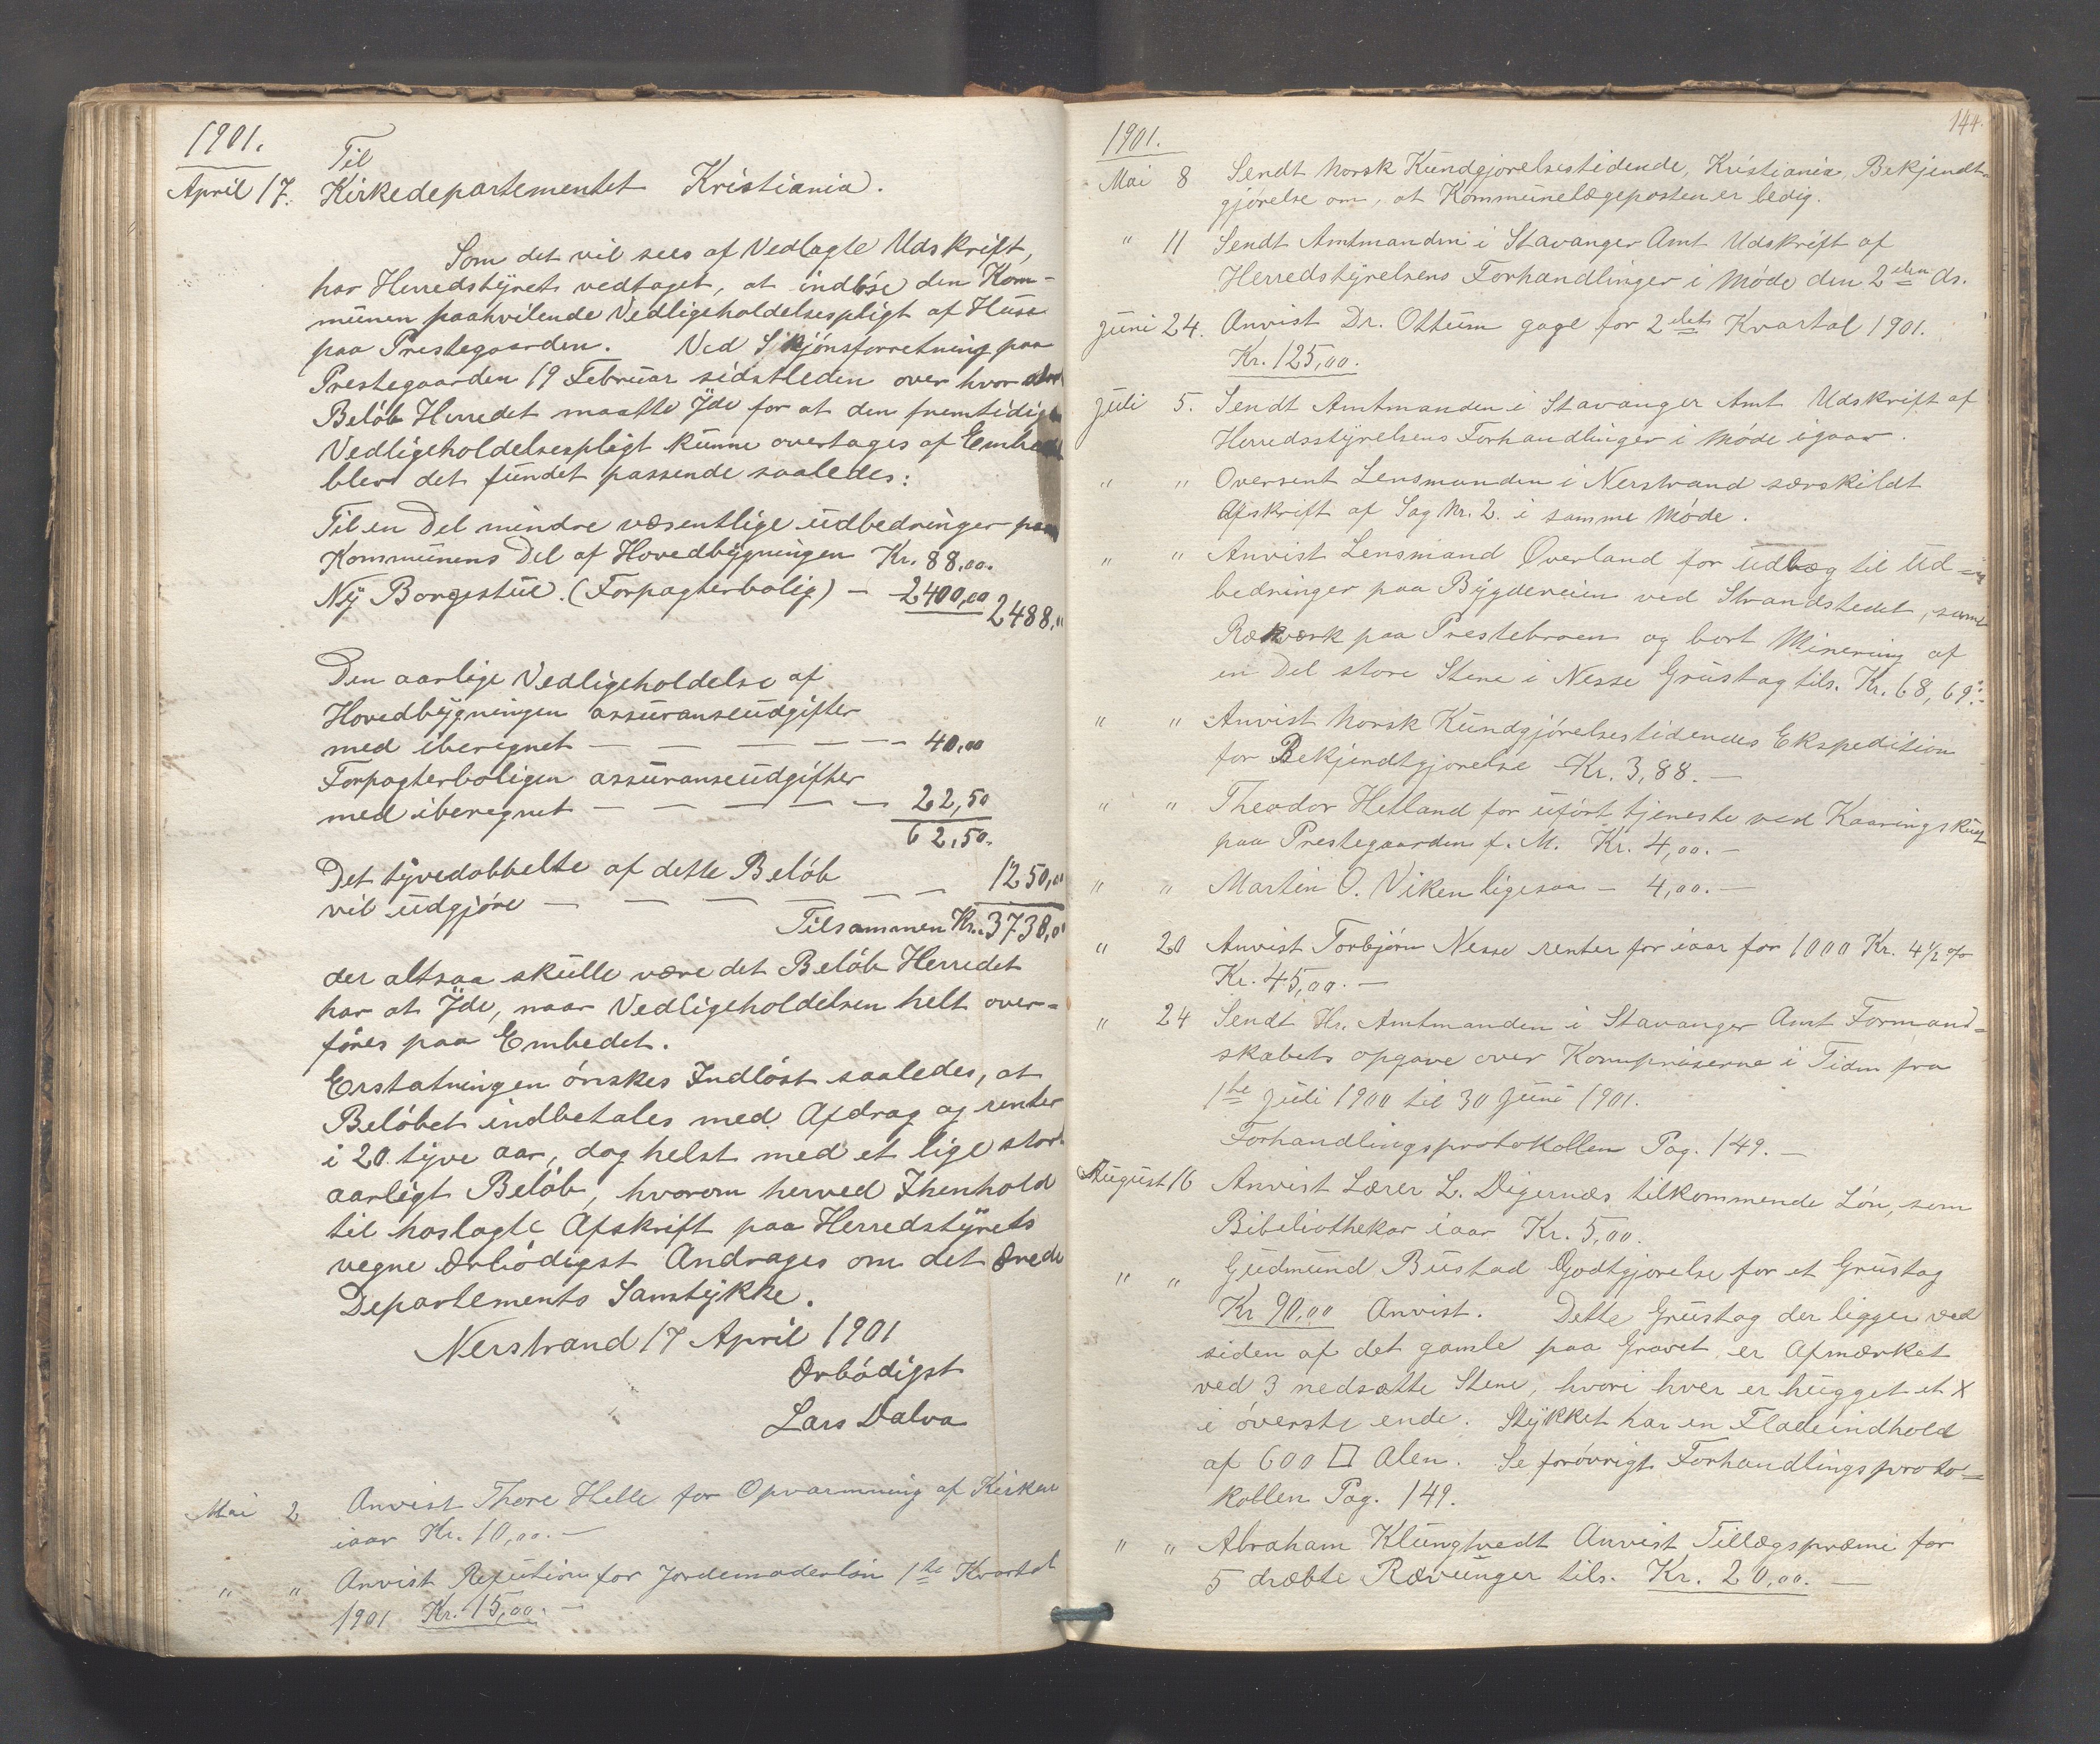 1901.
Til
April 17. Kirkedepartementet Kristiania.
Som det vil sees af Vedlagte Udskrift,
har Herredstyret vedtaget, at indløse den Kom-
munen paahvilende Vedligeholdelsespligt af Huse
paa Prestegaarden. Ved Skjønsforretning paa
Prestegaarden 19 Februar sidstleden over hvor
Beløb Herredet maatte Yde for at den fremtidige
Vedligeholdelsespligt kunne overtages af
blev det fundet passende saaledes:
Til en Del mindre væsentlige udbedringer paa
Kommunens Del af Hovedbygningen Kr. 88,00.
Ny Borgestue. (Forpagterbolig) — 2400,00 2488,"
Den aarlige Vedligeholdelse af
Hovedbygningen assuranseudgifter
med iberegnet — — — — — 40,00
Forpagterboligen assuranseudgifter
med iberegnet — — — — — 22,50
62,50.
Det tyvedobbelte af dette Beløb
vil udgjøre — — — — — — 1250,00
Tilsammen Kr. 3738,00
der altsaa skulle være det Beløb Herredet
har at Yde, naar Vedligeholdelsen helt over-
føres paa Embedet.
Erstatningen ønskes Indløst saaledes, at
Beløbet indbetales med Afdrag og renter
i 20 tyve aar, dog helst med et lige stort
aarligt Beløb, hvorom herved Ihenhold
til hoslagte Afskrift paa Herredstyrets
vegne Ærbødigst Andrages om det Ærede
Departements Samtykke.
Nerstrand 17 April 1901
Ærbødigst
Lars Dalva
Mai 2 Anvist Thore Helle for Opvarmning af Kirken
iaar Kr. 10,00. —
" " Anvist for Jordemoderløn 1ste Kvartal
1901 Kr. 15,00. —
144.
1901.
Mai 8 Sendt Norsk Kundgjørelsestidende, Kristiania, Bekjendt-
gjørelse om, at Kommunelægeposten er ledig.
" 11 Sendt Amtmanden i Stavanger Amt Udskrift af
Herredstyrelsens Forhandlinger i Møde den 2den ds.
Juni 24. Anvist Dr. Ottum gage for 2det Kvartal 1901.
Kr. 125,00.
Juli 5. Sendt Amtmanden i Stavanger Amt Udskrift af
Herredsstyrelsens Forhandlinger i Møde igaar.
" " Oversent Lensmanden i Nerstrand særskildt
Afskrift af Sag Nr. 2. i samme Møde.
" " Anvist Lensmand Øverland for udlæg til Ud-
bedringer paa Bygdeveien ved Strandstedet, samt
Rækværk paa Prestebroen og bort Minering af
en Del store Stene i Nesse Grustag tils. Kr. 68,69.-
" " Anvist Norsk Kundgjørelsestidendes Ekspedition
for Bekjendtgjørelse Kr. 3,88. —
" " Theodor Hetland for uført tjeneste ved
paa Prestegaarden f. M. Kr. 4,00. —
" " Martin O. Viken ligesaa — 4,00. —
" 20 Anvist Torbjørn Nesse renter for iaar for 1000 Kr. 4 1/2 %
Kr. 45,00. —
" 24 Sendt Hr. Amtmanden i Stavanger Amt Formand-
skabets opgave over Kornpriserne i Tiden fra
1ste Juli 1900 til 30 Juni 1901.
Forhandlingsprotokollen Pag. 149. —
August 16 Anvist Lærer L. Digernæs tilkommende Løn, som
Bibeliothekar iaar Kr. 5,00.
" " Gudmund Bustad Godtgjørelse for et Grustag
Kr 90,00 Anvist. Dette Grustag der ligger ved
siden af det gamle paa Gravet er Afmærket
ved 3 nedsatte Stene, hvori hver er hugget et X
i øverste ende. Stykket har en Fladeindhold
af 600 □ Alen. Se forøvrigt Forhandlingsproto-
kollen Pag. 149.
" " Abraham Klungtvedt Anvist Tillægspræmi for
5 dræbte Rævunger tils. Kr. 20,00. —